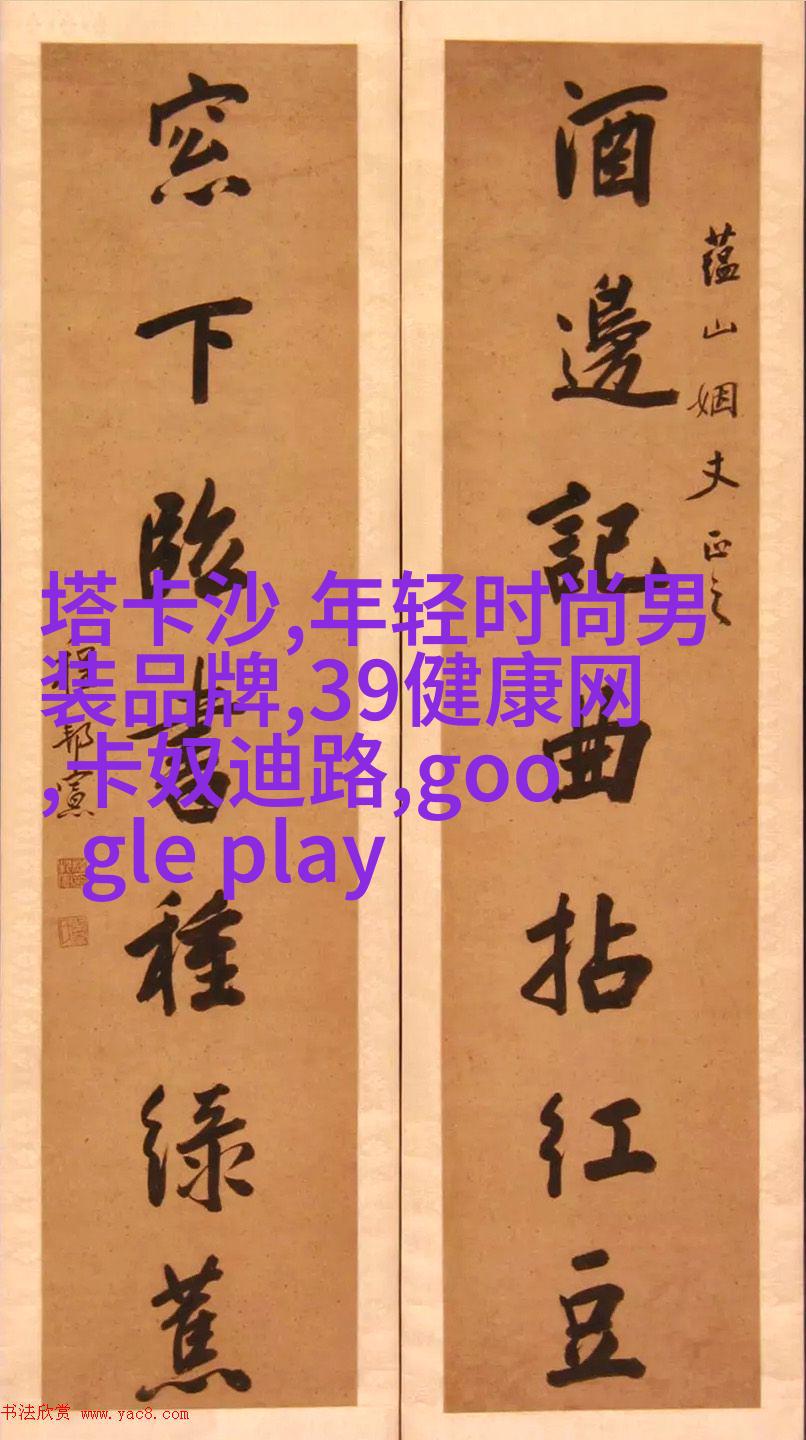 酒邊記曲拈紅豆
蘊山姻丈正之
窓下臨書種綠蕉
程邦憲
塔卡沙,年轻时尚男
装品牌,39健康网
,卡奴迪路,goo
gle play
书法欣赏 www.yac8.com